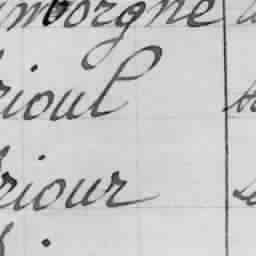 mborgne
rioul
riour